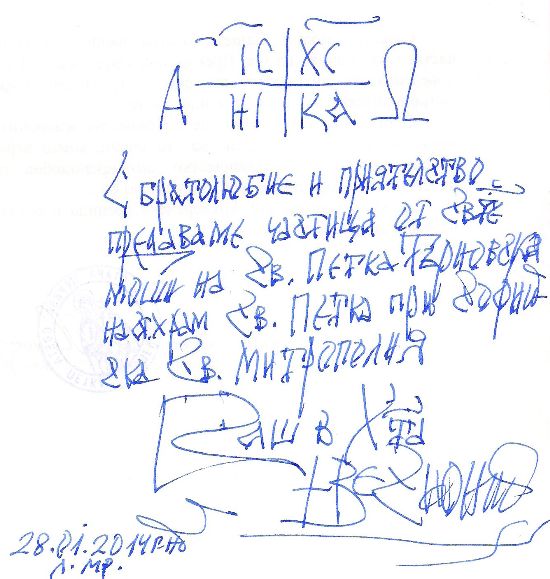 IC XC
А НІ КА Ω
С братолюбие и приятелство
предаваме частица от Св-те
мощи на Св. Петка Търновска
на храм Св. Петка при Софий-
ска Св. Митрополия
Ваш в Хта
28.01.2014